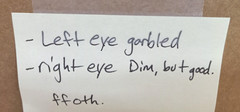 - Left eye garbled
- right eye Dim, but good.
ffoth.